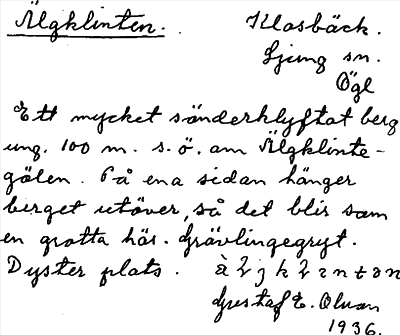 Älgklinten.
Klosbäck.
Ljung sn.
Ögl
Ett mycket sönderklyftat berg
ung. 100 m. s.ö. om Älgklinte-
gölen. På ena sidan hänger
berget utöver, så det blir som
en grotta här. Grävlingegryt.
Dyster plats.
Gustaf E. Olson
1936.